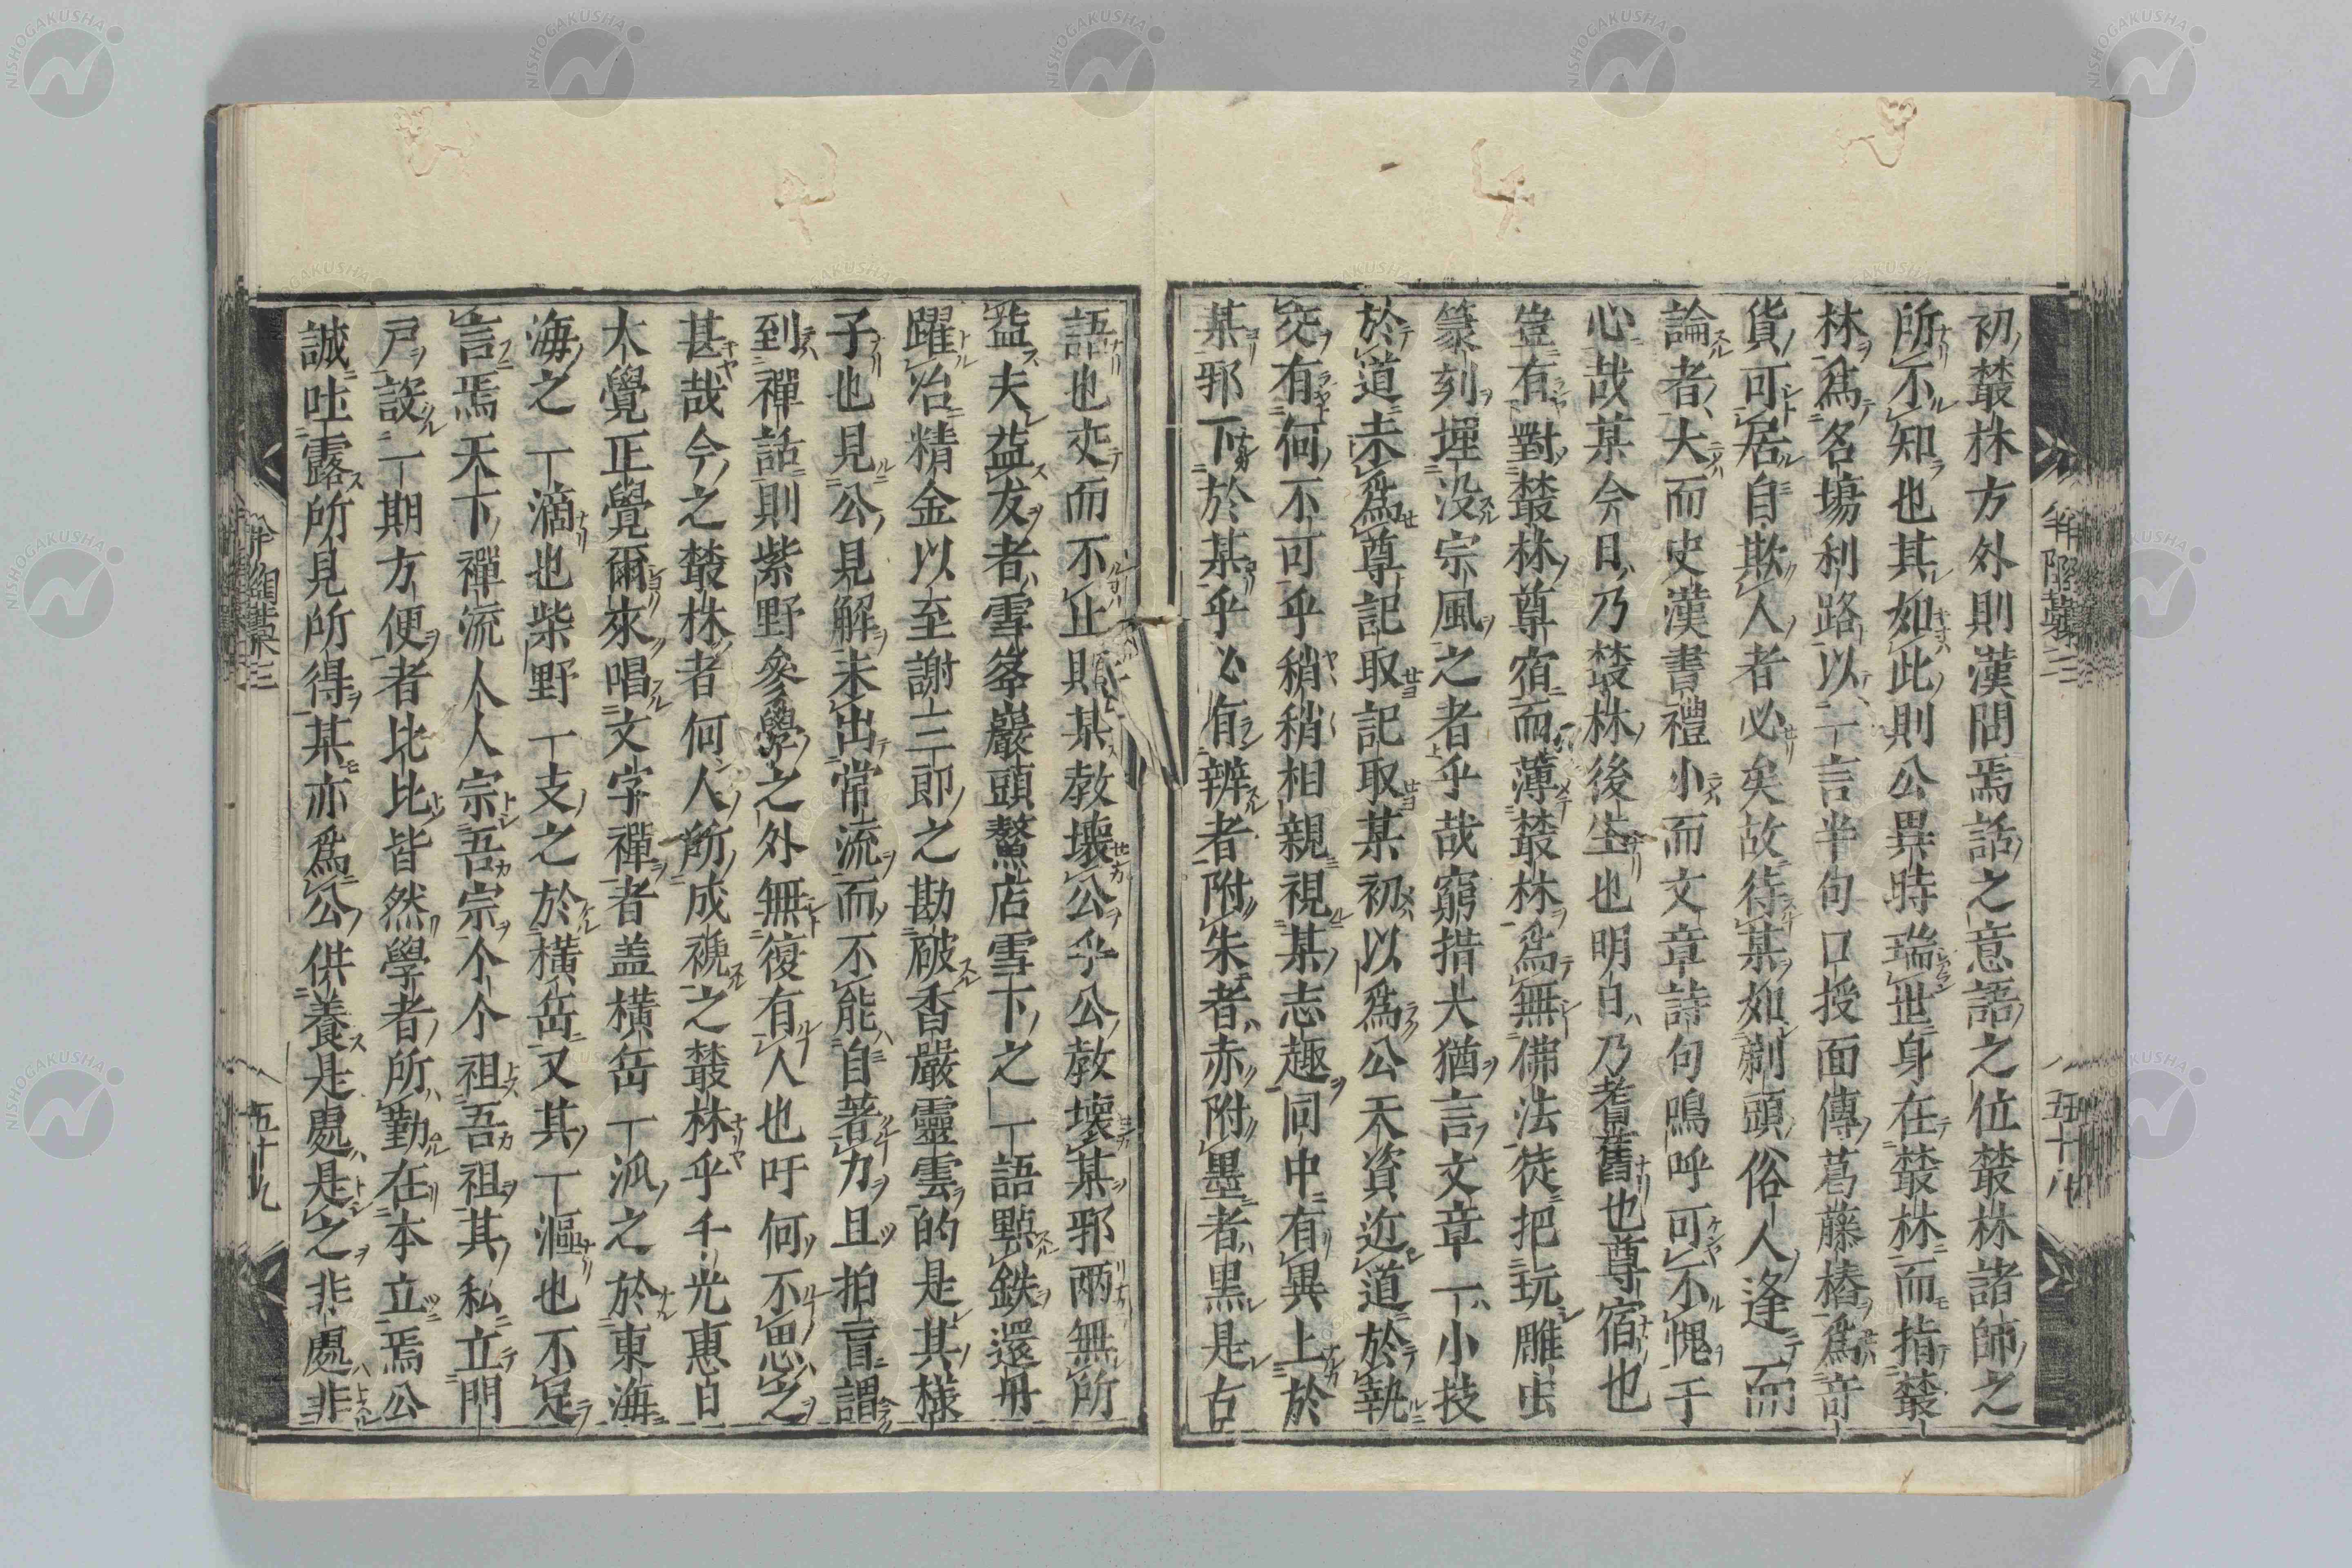 初叢林方外則漢問焉話之意語之位叢林諸師之
所不知也其如此則公異時瑞世身在叢林而指叢
林爲名塲利路以一言半句口授面傳葛藤樁爲奇
貨可居自欺人者必矣故待某如剃頭俗人逢而
論者大而史漢書禮小而文章詩句嗚呼可不愧于
心哉某今日乃叢林後生也明日乃耆舊也尊宿也
豈有對叢林尊宿而薄叢林爲無佛法徒把玩雕虫
篆刻堙没宗風之者乎哉窮措大猶言文章一小技
於道未爲尊記取記取某初以爲公天資近道於執
交有何不可乎稍稍相親視某志趣同中有異上於
某邪下於某乎必有辨者附朱者赤附墨者黒是古
語也交而不止則某教壊公乎公教壊某邪兩無所
益夫益友者雪峯巖頭鰲店雪下之一語點鉄還丹
躍冶精金以至謝三郎之勘破香嚴靈雲的是其樣
子也見公見解未出常流而不能自著力且拍盲謂
到禪話則紫野參學之外無復有人也吁何不思之
甚哉今之叢林者何人所成褫之叢林乎千光惠日
大覺正覺爾來唱文字禪者盖横岳一派之於東海
海之一滴也柴野一支之於横岳又其一漚也不足
言焉天下禪流人人宗吾宗个个祖吾祖其私立門
戸設一期方便者比比皆然學者所勤在本立焉公
誠吐露所見所得某亦爲公供養是處是之非處非
半陶藁三
五十八
半陶藁三
五十九
NISHOGAKUSHA